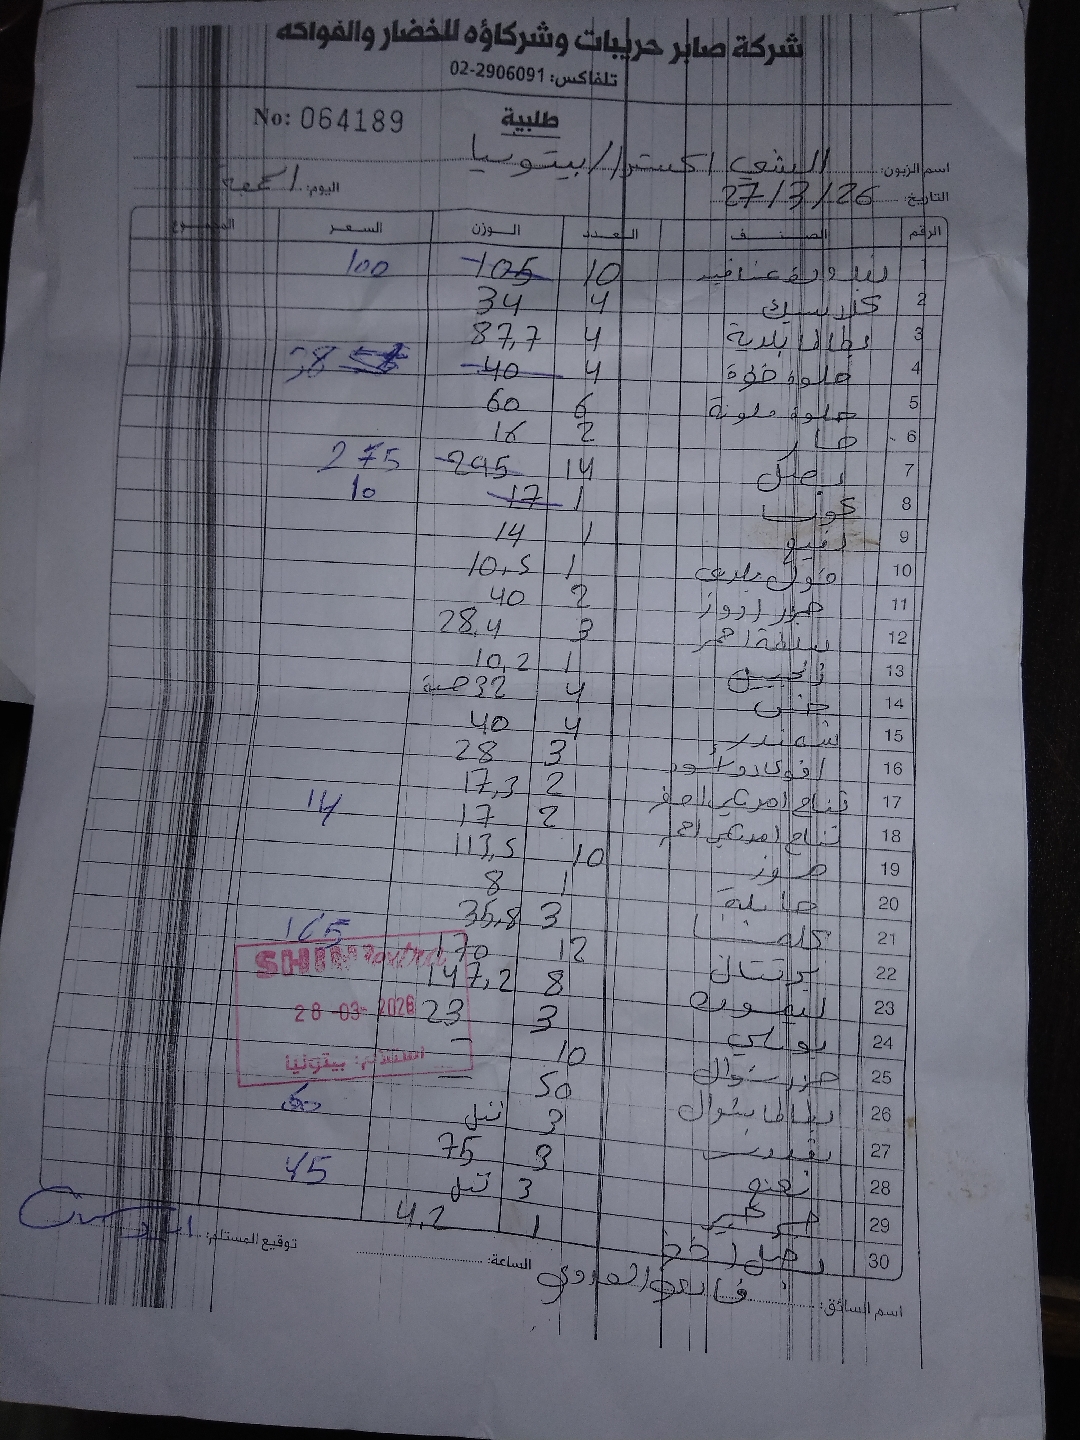 شركة صابر حريبات وشركاؤه للخضار والفواكه
تلفاكس: 02-2906091
No: 064189
طلبية
اسم الزبون: الشني اكسترا / بيتونيا
التاريخ: 27/3/26 اليوم: الجمعة
الرقم الصنف العدد الوزن السعر المجموع
1 بندورة عناقيد 10 105 100
2 كلاسيك 4 34
3 بطاطا بلدية 4 87,7
4 حلوة 4 40 38
5 حلوة ملونة 6 60
6 حار 2 16
7 بصل 14 295 275
8 كوسا 1 17 10
9 1 14
10 فول بلدي 1 10,5
11 جزر 2 40
12 3 28,4
13 زنجبيل 1 10,2
14 خس 4 32 حبة
15 شمندر 4 40
16 افوكادو 3 28
17 تفاح امريكي اصفر 2 17,3
18 تفاح امريكي احمر 2 17 14
19 موز 10 113,5
20 1 8
21 كلمنتينا 3 35,8
22 برتقال 12 170 165
23 ليمون 8 147,2
24 3 23
25 جزر شوال 10 —
26 بطاطا شوال 50 —
27 بقدونس 3 60
28 نعنع 3 75
29 3 45
30 بصل اخضر 1 4,2
SHINI
28-03-2026
استلام: بيتونيا
توقيع المستلم:
الساعة:
اسم السائق: